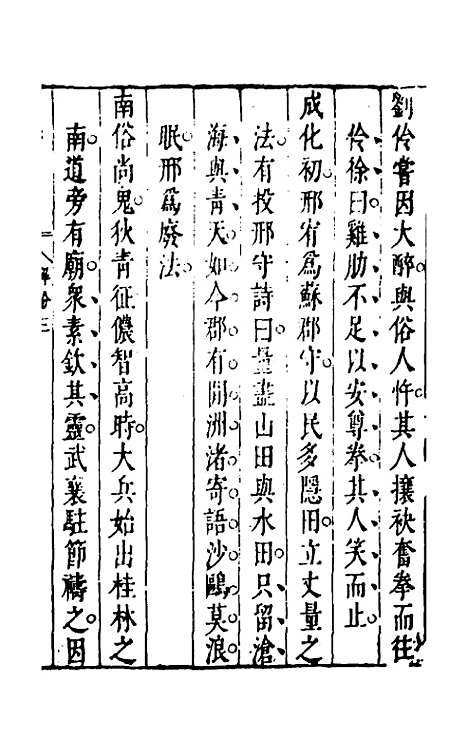 劉伶嘗因大醉與俗人忤其人攘袂奮拳而往
伶徐曰雞肋不足以安尊拳其人笑而止
成化初邢宥爲蘇郡守以民多隱田立丈量之
法有投邢守詩曰量盡山田與水田只留滄
海與青天如今郡有閒洲渚寄語沙鷗莫浪
眠邢爲廢法
南俗尚鬼狄青征儂智高時大兵始出桂林之
南道旁有廟衆素欽其靈武襄駐節禱之因